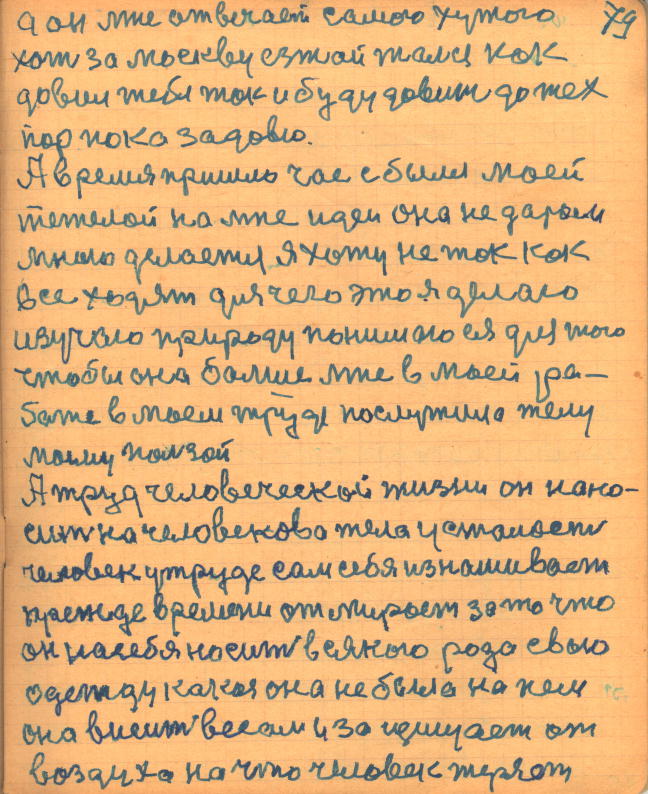 79
а он мне отвечает самого хутого
хот за москву езжай жался как
довил тебя так и буду довит до тех
пор пока задовю.
А время пришло час с были моей
тежелой на мне идеи она не даром
много делается я хожу не так как
все ходят для чего это я делаю
изучаю природу понимаю ея для того
чтобы она болше мне в моей ра-
боте в моем труде послужила телу
моему ползой
А труд человеческой жизни он нано-
сит на человекова тела усталости
человек у труде сам себя изнашивает
прежде времени отмирает за то что
он на себя носит всякого рода свою
одежду какая она не была на нем
она висит весам и защищает от
воздуха на что человек теряет